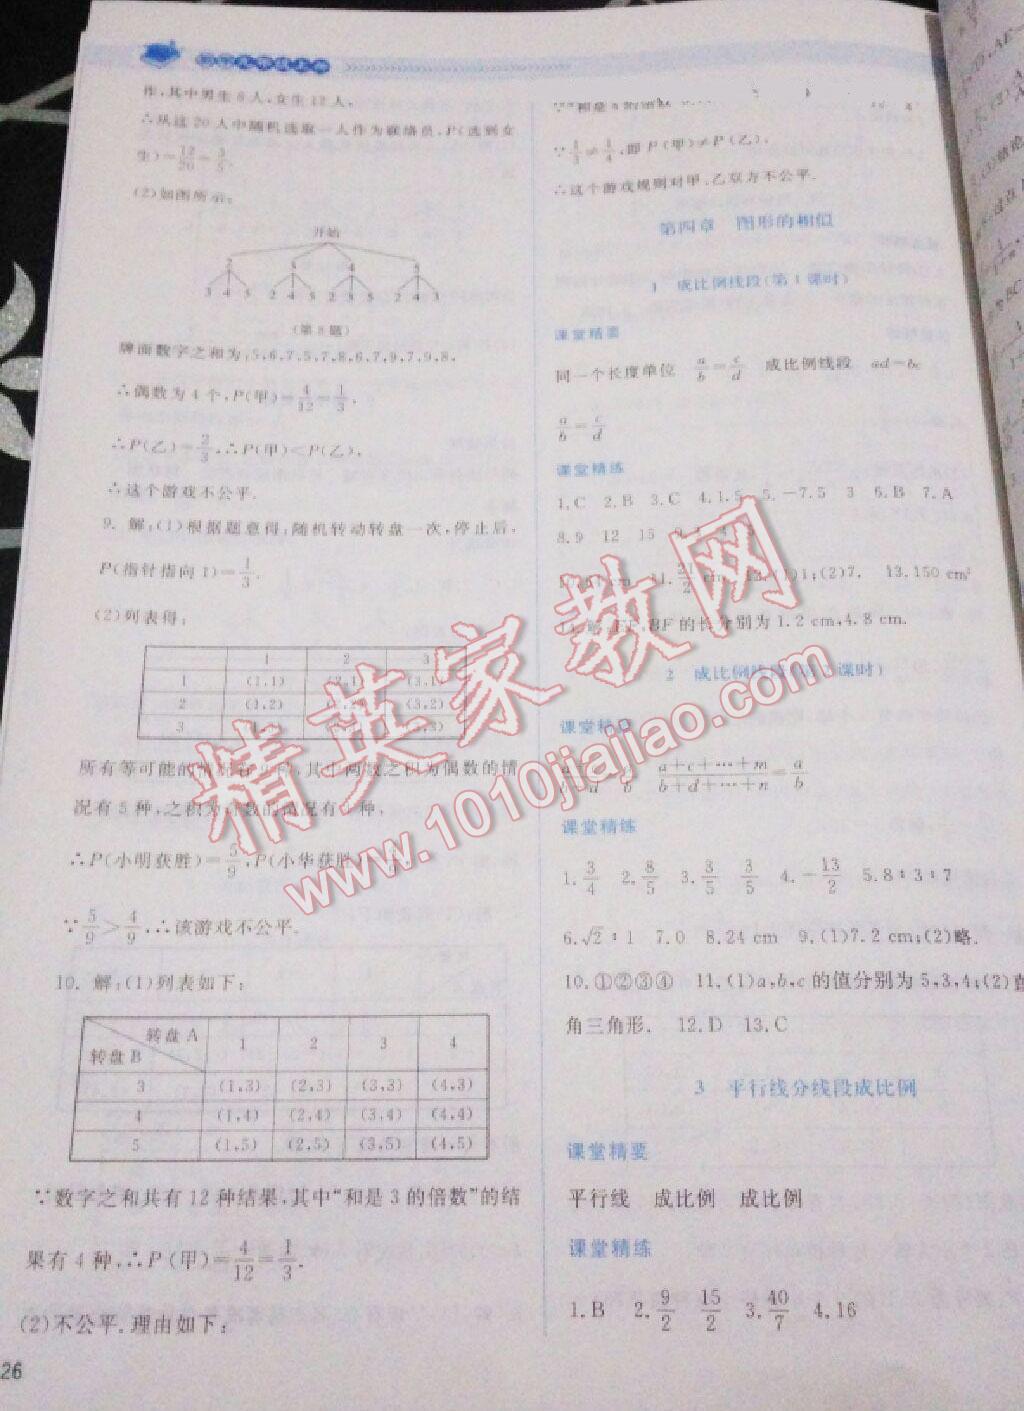 作,其中男生8人,女生12人,
∴从这20人中随机选取一人作为联络员,P(选到女
生)=12/20=3/5.
(2)如图所示:
开始
2 3 4 5
3 4 5 2 4 5 2 3 5 2 4 3
(第8题)
牌面数字之和为:5,6,7,5,7,8,6,7,9,7,9,8,
∴偶数为4个,P(甲)=4/12=1/3,
∴P(乙)=2/3,∴P(甲)<P(乙),
∴这个游戏不公平.
9. 解:(1)根据题意得:随机转动转盘一次,停止后,
P(指针指向1)=1/3.
(2)列表得:
1 2 3
1 (1,1) (2,1) (3,1)
2 (1,2)
3
所有等可能的情况有9种,其中两数之积为偶数的情
况有5种,之积为奇数的情况有4种,
∴P(小明获胜)=5/9,P(小华获胜)
∵5/9>4/9,∴该游戏不公平.
10. 解:(1)列表如下:
转盘A 转盘B 1 2 3 4
3 (1,3) (2,3) (3,3) (4,3)
4 (1,4) (2,4) (3,4) (4,4)
5 (1,5) (2,5) (3,5) (4,5)
∵数字之和共有12种结果,其中“和是3的倍数”的结
果有4种,∴P(甲)=4/12=1/3.
(2)不公平.理由如下:
26
∵1/3≠1/4,即P(甲)≠P(乙),
∴这个游戏规则对甲、乙双方不公平.
第四章 图形的相似
1 成比例线段(第1课时)
课堂精要
同一个长度单位 a/b=c/d 成比例线段 ad=bc
a/b=c/d
课堂精练
1.C 2.B 3.C 4.1.5 5.-7.5 3 6.B 7.A
8.9 12 15
11.21/2 cm 12.(1)1;(2)7. 13.150 cm²
14.解:EF,BF的长分别为1.2 cm,4.8 cm.
2 成比例线段(第2课时)
课堂精要
(a+c+⋯+m)/(b+d+⋯+n)=a/b
课堂精练
1.3/4 2.8/5 3.3/5 3/5 4.-13/2 5.8∶3∶7
6.√2∶1 7.0 8.24 cm 9.(1)7.2 cm;(2)略.
10.①②③④ 11.(1)a,b,c的值分别为5,3,4;(2)直
角三角形. 12.D 13.C
3 平行线分线段成比例
课堂精要
平行线 成比例 成比例
课堂精练
1.B 2.9/2 15/2 3.40/7 4.16
精英家教网
www.1010jiajiao.com